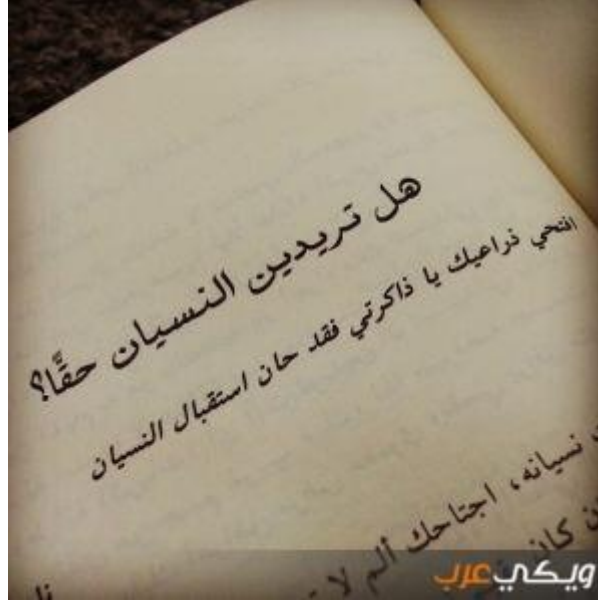 هل تريدين النسيان حقًّا؟
افتحي ذراعيك يا ذاكرتي فقد حان استقبال النسيان
نسيانه، اجتاحك ألم لا
كان
ويكي عرب